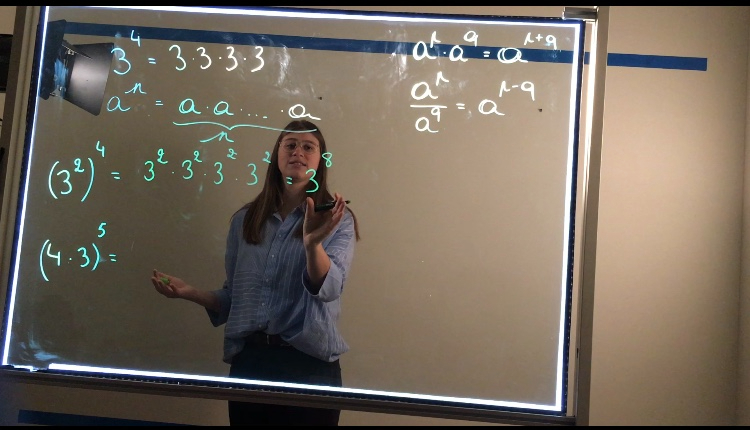 3⁴ = 3·3·3·3
aⁿ = a·a·...·a
n
(3²)⁴ = 3²·3²·3²·3² = 3⁸
(4·3)⁵ =
aᵖ·a^q = a^(p+q)
aᵖ/a^q = a^(p-q)